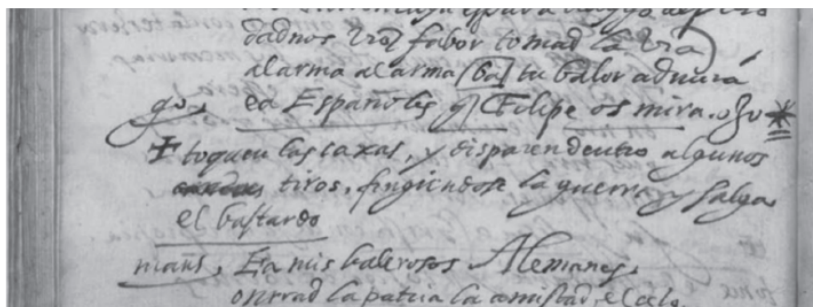 dadnos vr̃o fabor tomad la vra
al arma al arma [ba] tu balor admira
go, ea Españoles q̃ Filipe os mira. ojo
toquen las caxas, y disparen dentro algunos
tiros, fingiendose la guerra y salga
el bastardo
mañs, Ea mis balerosos Alemanes,
onrrad la patria la amistad, el celo